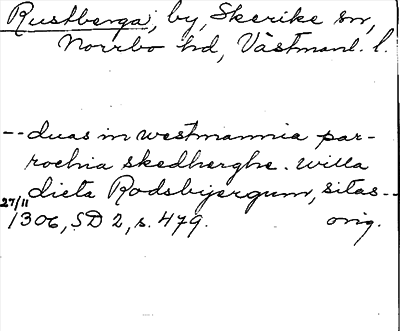 Rustberga, by, Skerike sn,
Norrbo hd, Västmanl. l.
-- duas in westmannia par-
rochia skedherghe. willa
dicta Rodsbyergum, sitas --
27/11 1306, SD 2, s. 479. orig.